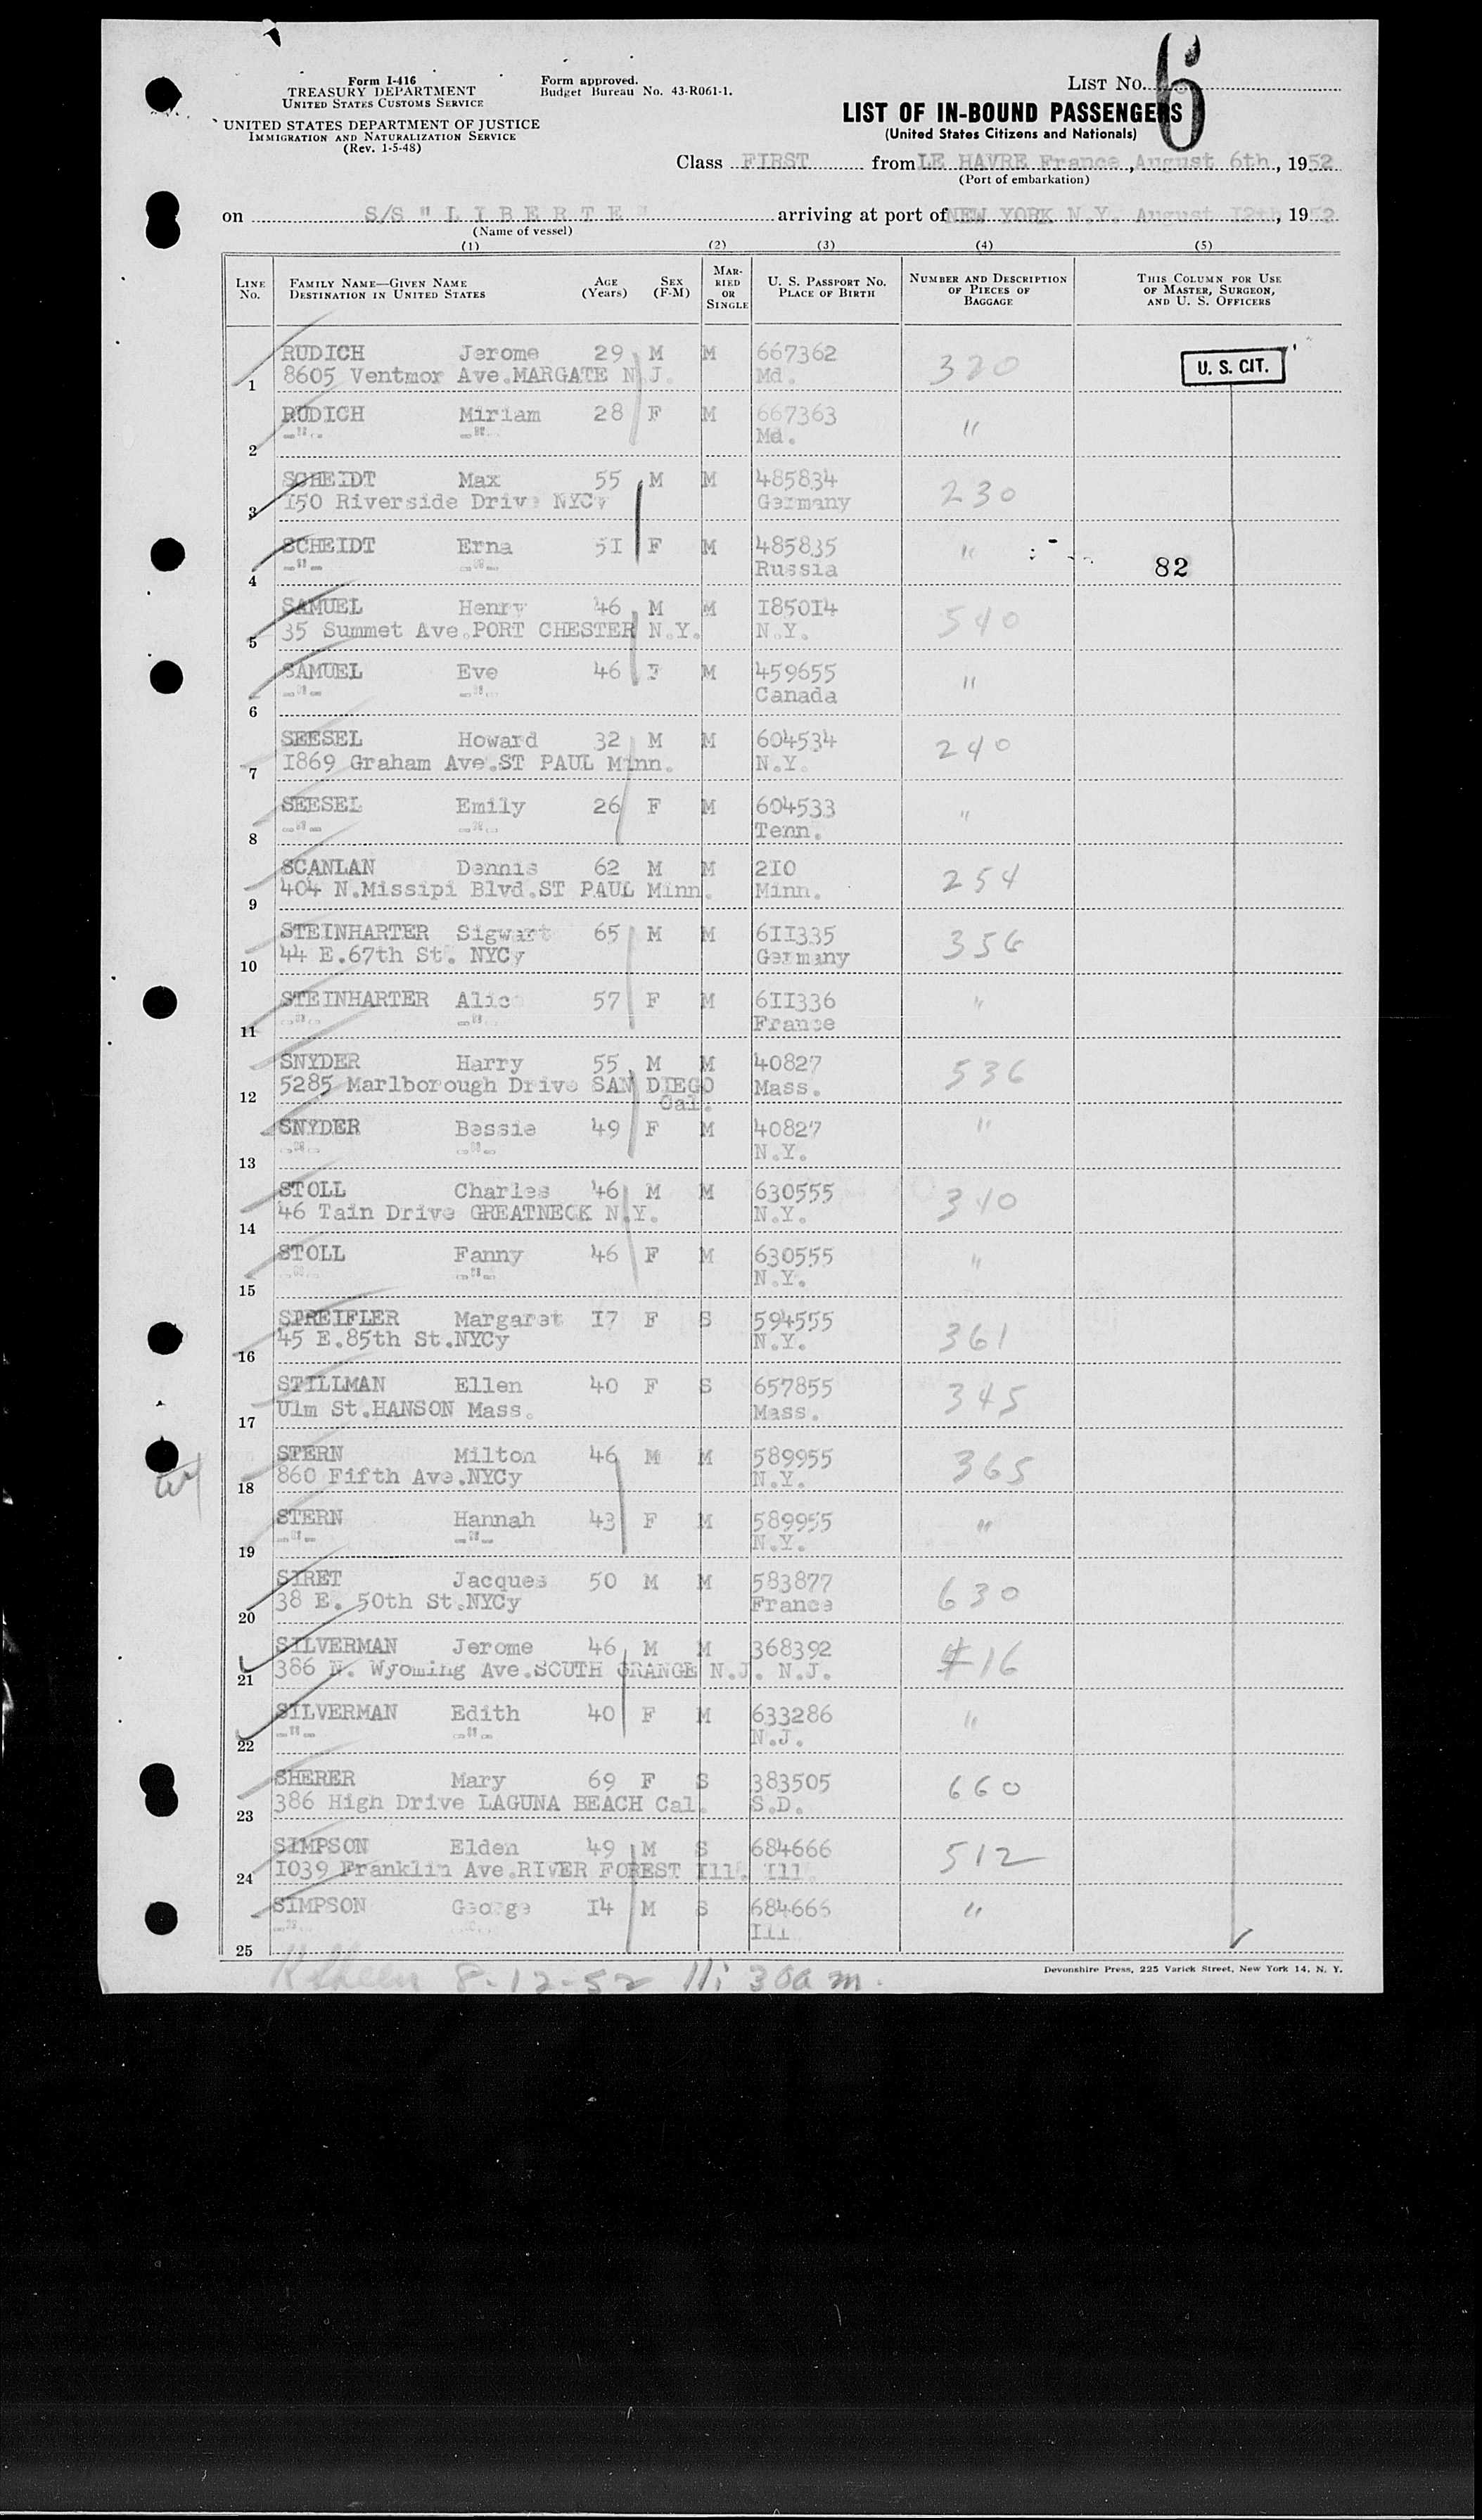 Form I-416
TREASURY DEPARTMENT
UNITED STATES CUSTOMS SERVICE
UNITED STATES DEPARTMENT OF JUSTICE
IMMIGRATION AND NATURALIZATION SERVICE
(Rev. 1-5-48)
Form approved.
Budget Bureau No. 43-R061-1.
LIST NO. 6
LIST OF IN-BOUND PASSENGERS
(United States Citizens and Nationals)
Class FIRST from LE HAVRE France, August 6th, 1952
(Port of embarkation)
on S/S "LIBERTE" arriving at port of NEW YORK N.Y. August 12th, 1952
(Name of vessel)
(1) (2) (3) (4) (5)
LINE NO. FAMILY NAME—GIVEN NAME DESTINATION IN UNITED STATES AGE (Years) SEX (F-M) MARRIED OR SINGLE U. S. PASSPORT NO. PLACE OF BIRTH NUMBER AND DESCRIPTION OF PIECES OF BAGGAGE THIS COLUMN FOR USE OF MASTER, SURGEON, AND U. S. OFFICERS
RUDICH Jerome 29 M M 667362 320 U. S. CIT.
1 8605 Ventmor Ave.MARGATE N J. Md.
RUDICH Miriam 28 F M 667363 "
2 -"- -"- Md.
SCHEIDT Max 55 M M 485834 230
3 I50 Riverside Drive NYCy Germany
SCHEIDT Erna 5I F M 485835 "
4 -"- -"- Russia 82
SAMUEL Henry 46 M M I850I4 540
5 35 Summet Ave.PORT CHESTER N.Y. N.Y.
SAMUEL Eve 46 F M 459655 "
6 -"- -"- Canada
SEESEL Howard 32 M M 604534 240
7 I869 Graham Ave.ST PAUL Minn. N.Y.
SEESEL Emily 26 F M 604533 "
8 -"- -"- Tenn.
SCANLAN Dennis 62 M M 2I0 254
9 404 N.Missipi Blvd.ST PAUL Minn. Minn.
STEINHARTER Sigwart 65 M M 6II335 356
10 44 E.67th St. NYCy Germany
STEINHARTER Alice 57 F M 6II336 "
11 -"- -"- France
SNYDER Harry 55 M M 40827 536
12 5285 Marlborough Drive SAN DIEGO Cal. Mass.
SNYDER Bessie 49 F M 40827 "
13 -"- -"- N.Y.
STOLL Charles 46 M M 630555 340
14 46 Tain Drive GREATNECK N.Y. N.Y.
STOLL Fanny 46 F M 630555 "
15 -"- -"- N.Y.
SPREIFLER Margaret I7 F S 594555 361
16 45 E.85th St.NYCy N.Y.
STILLMAN Ellen 40 F S 657855 345
17 Ulm St.HANSON Mass. Mass.
STERN Milton 46 M M 589955 365
18 860 Fifth Ave.NYCy N.Y.
STERN Hannah 43 F M 589955 "
19 -"- -"- N.Y.
SIRET Jacques 50 M M 583877 630
20 38 E. 50th St.NYCy France
SILVERMAN Jerome 46 M M 368392 416
21 386 N. Wyoming Ave.SOUTH ORANGE N.J. N.J.
SILVERMAN Edith 40 F M 633286 "
22 -"- -"- N.J.
SHERER Mary 69 F S 383505 660
23 386 High Drive LAGUNA BEACH Cal. S.D.
SIMPSON Elden 49 M S 684666 512
24 I039 Franklin Ave.RIVER FOREST Ill. Ill.
SIMPSON George I4 M S 684666 "
25 -"- -"- Ill.
8-12-52 11:30a m.
Devonshire Press, 225 Varick Street, New York 14, N. Y.